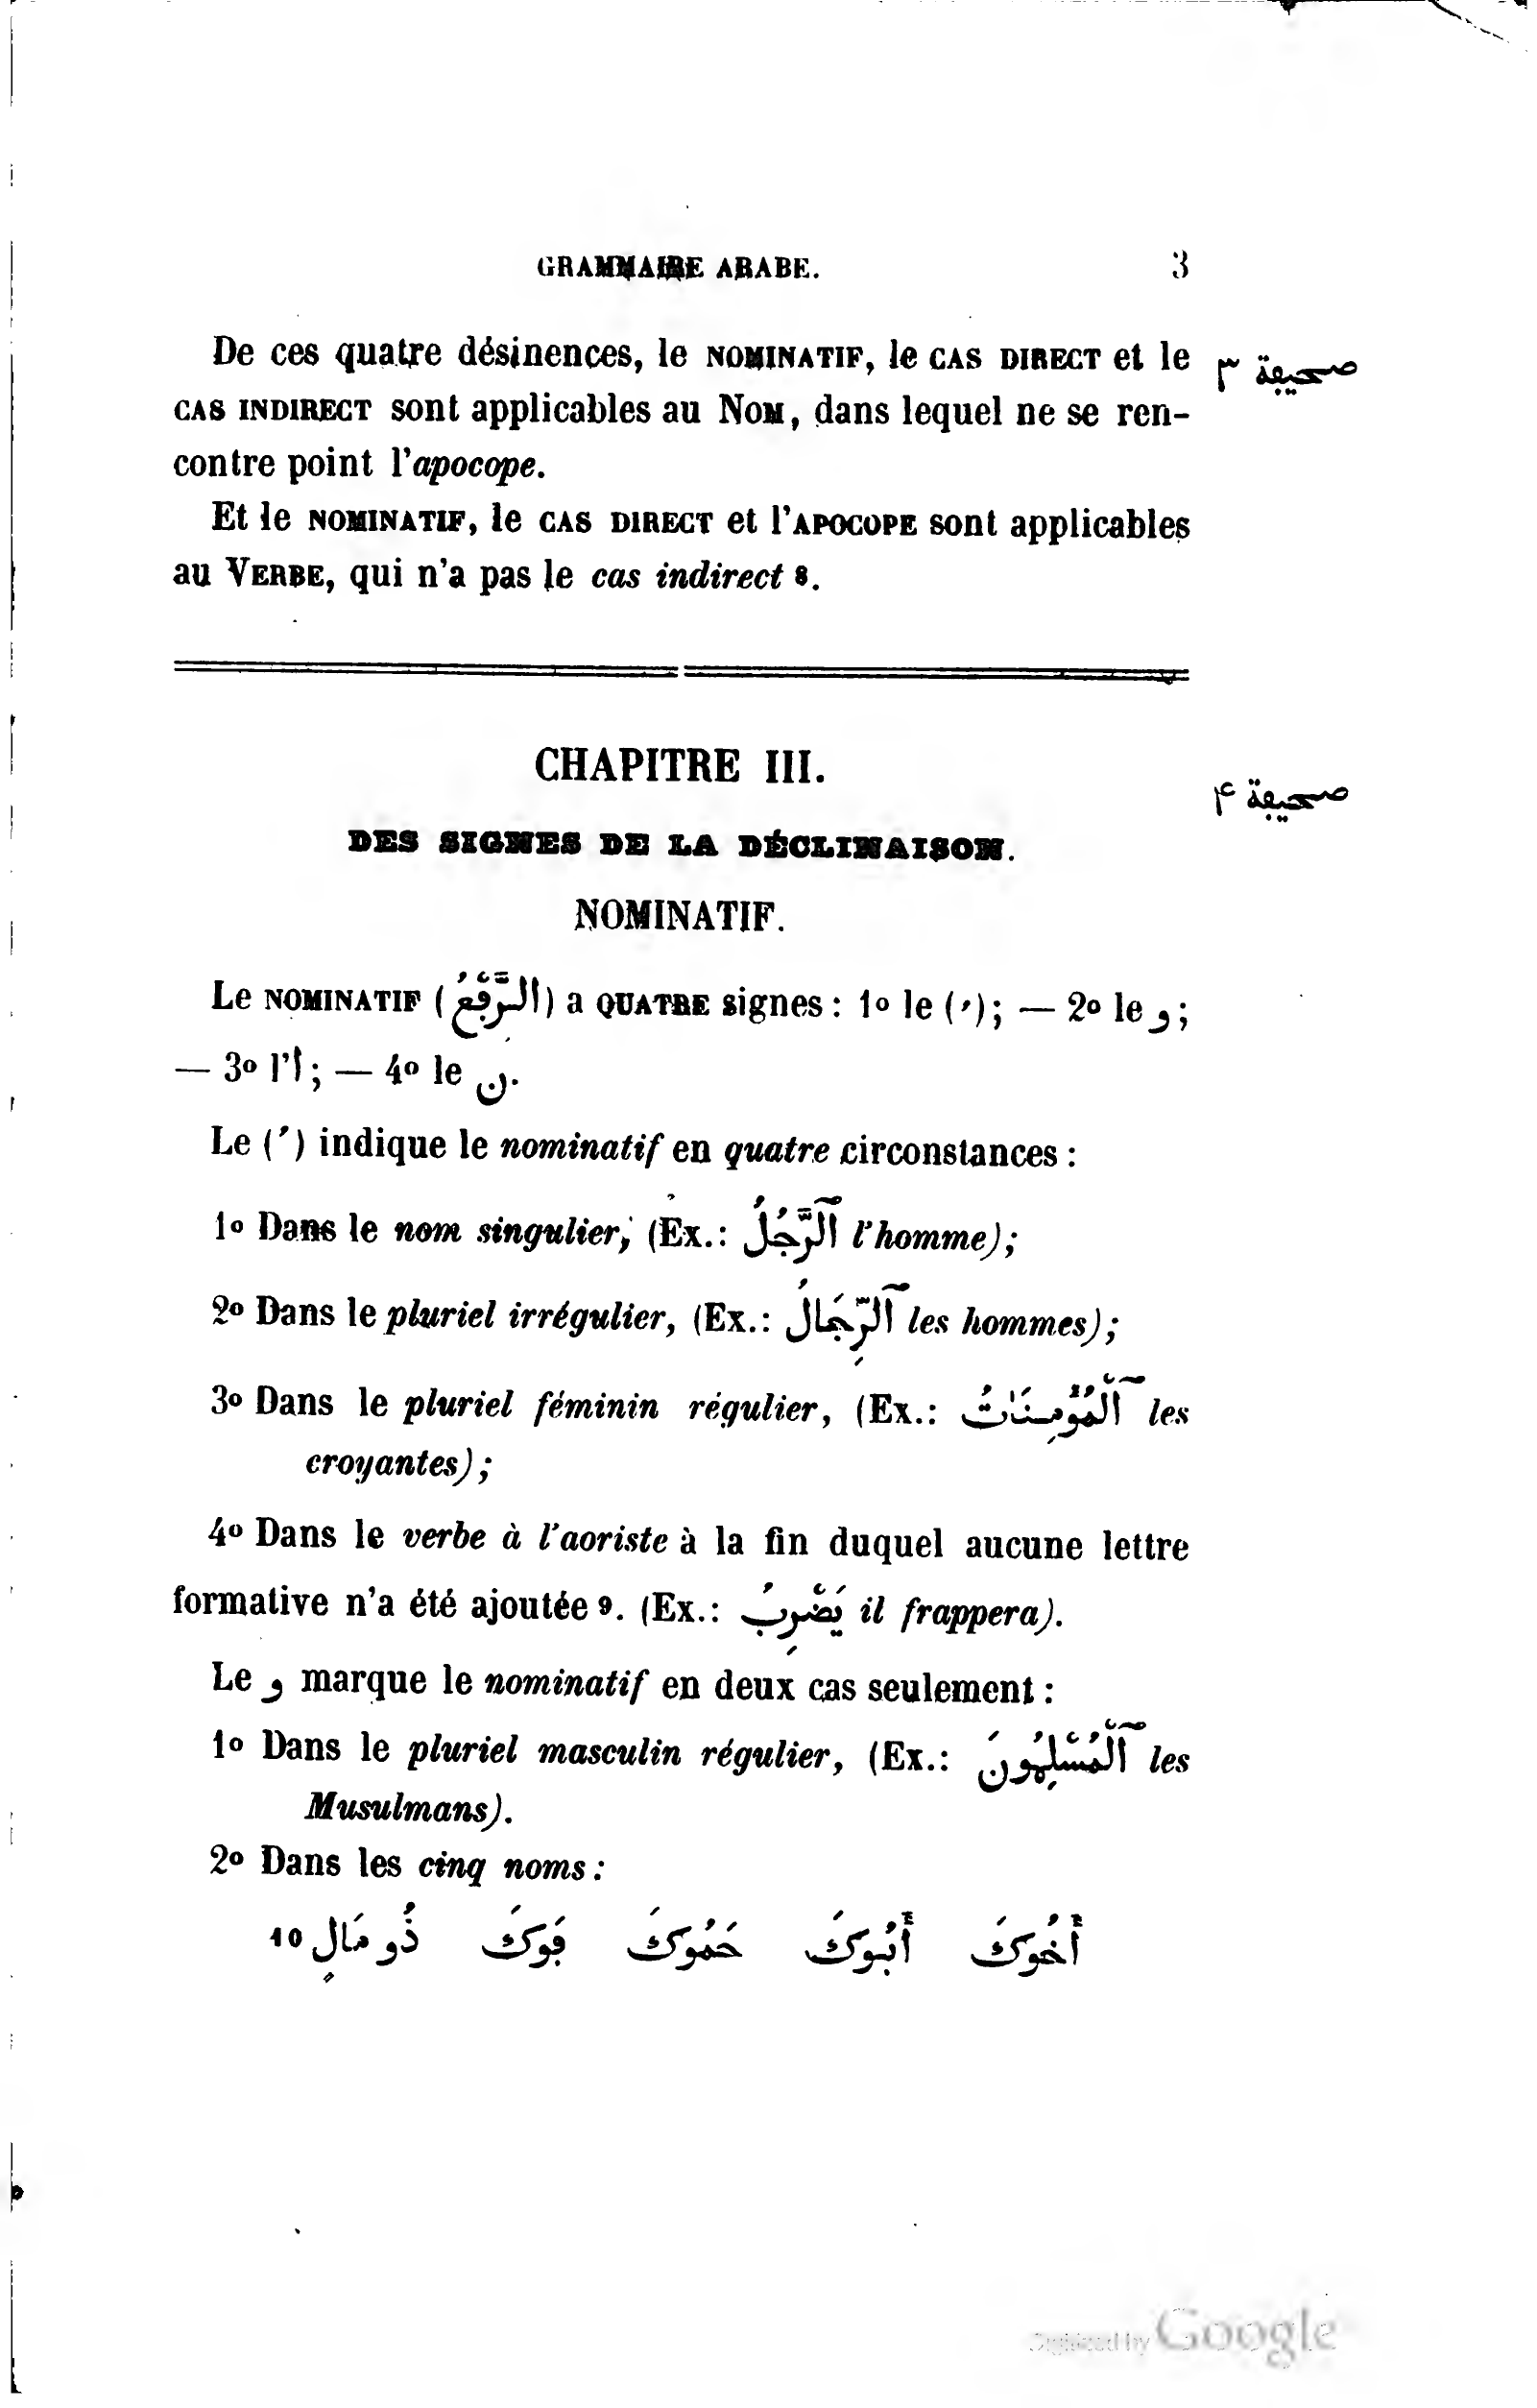 GRAMMAIRE ARABE. 3
De ces quatre désinences, le NOMINATIF, le CAS DIRECT et le صحيفة ٣
CAS INDIRECT sont applicables au NOM, dans lequel ne se ren-
contre point l'apocope.
Et le NOMINATIF, le CAS DIRECT et l'APOCOPE sont applicables
au VERBE, qui n'a pas le cas indirect 8.
CHAPITRE III. صحيفة ۴
DES SIGNES DE LA DÉCLINAISON.
NOMINATIF.
Le NOMINATIF (الرَّفْعُ) a QUATRE signes : 1º le (ُ) ; — 2º le و ;
— 3º l'ا ; — 4º le ن.
Le (ُ) indique le nominatif en quatre circonstances :
1º Dans le nom singulier, (Ex. : آلرَّجُلُ l'homme) ;
2º Dans le pluriel irrégulier, (Ex. : آلرِّجَالُ les hommes) ;
3º Dans le pluriel féminin régulier, (Ex. : آلْمُؤْمِنَاتُ les
croyantes) ;
4º Dans le verbe à l'aoriste à la fin duquel aucune lettre
formative n'a été ajoutée 9. (Ex. : يَضْرِبُ il frappera).
Le و marque le nominatif en deux cas seulement :
1º Dans le pluriel masculin régulier, (Ex. : آلْمُسْلِمُونَ les
Musulmans).
2º Dans les cinq noms :
أَخُوكَ أَبُوكَ حَمُوكَ فُوكَ ذُو مَالٍ 10
Digitized by Google